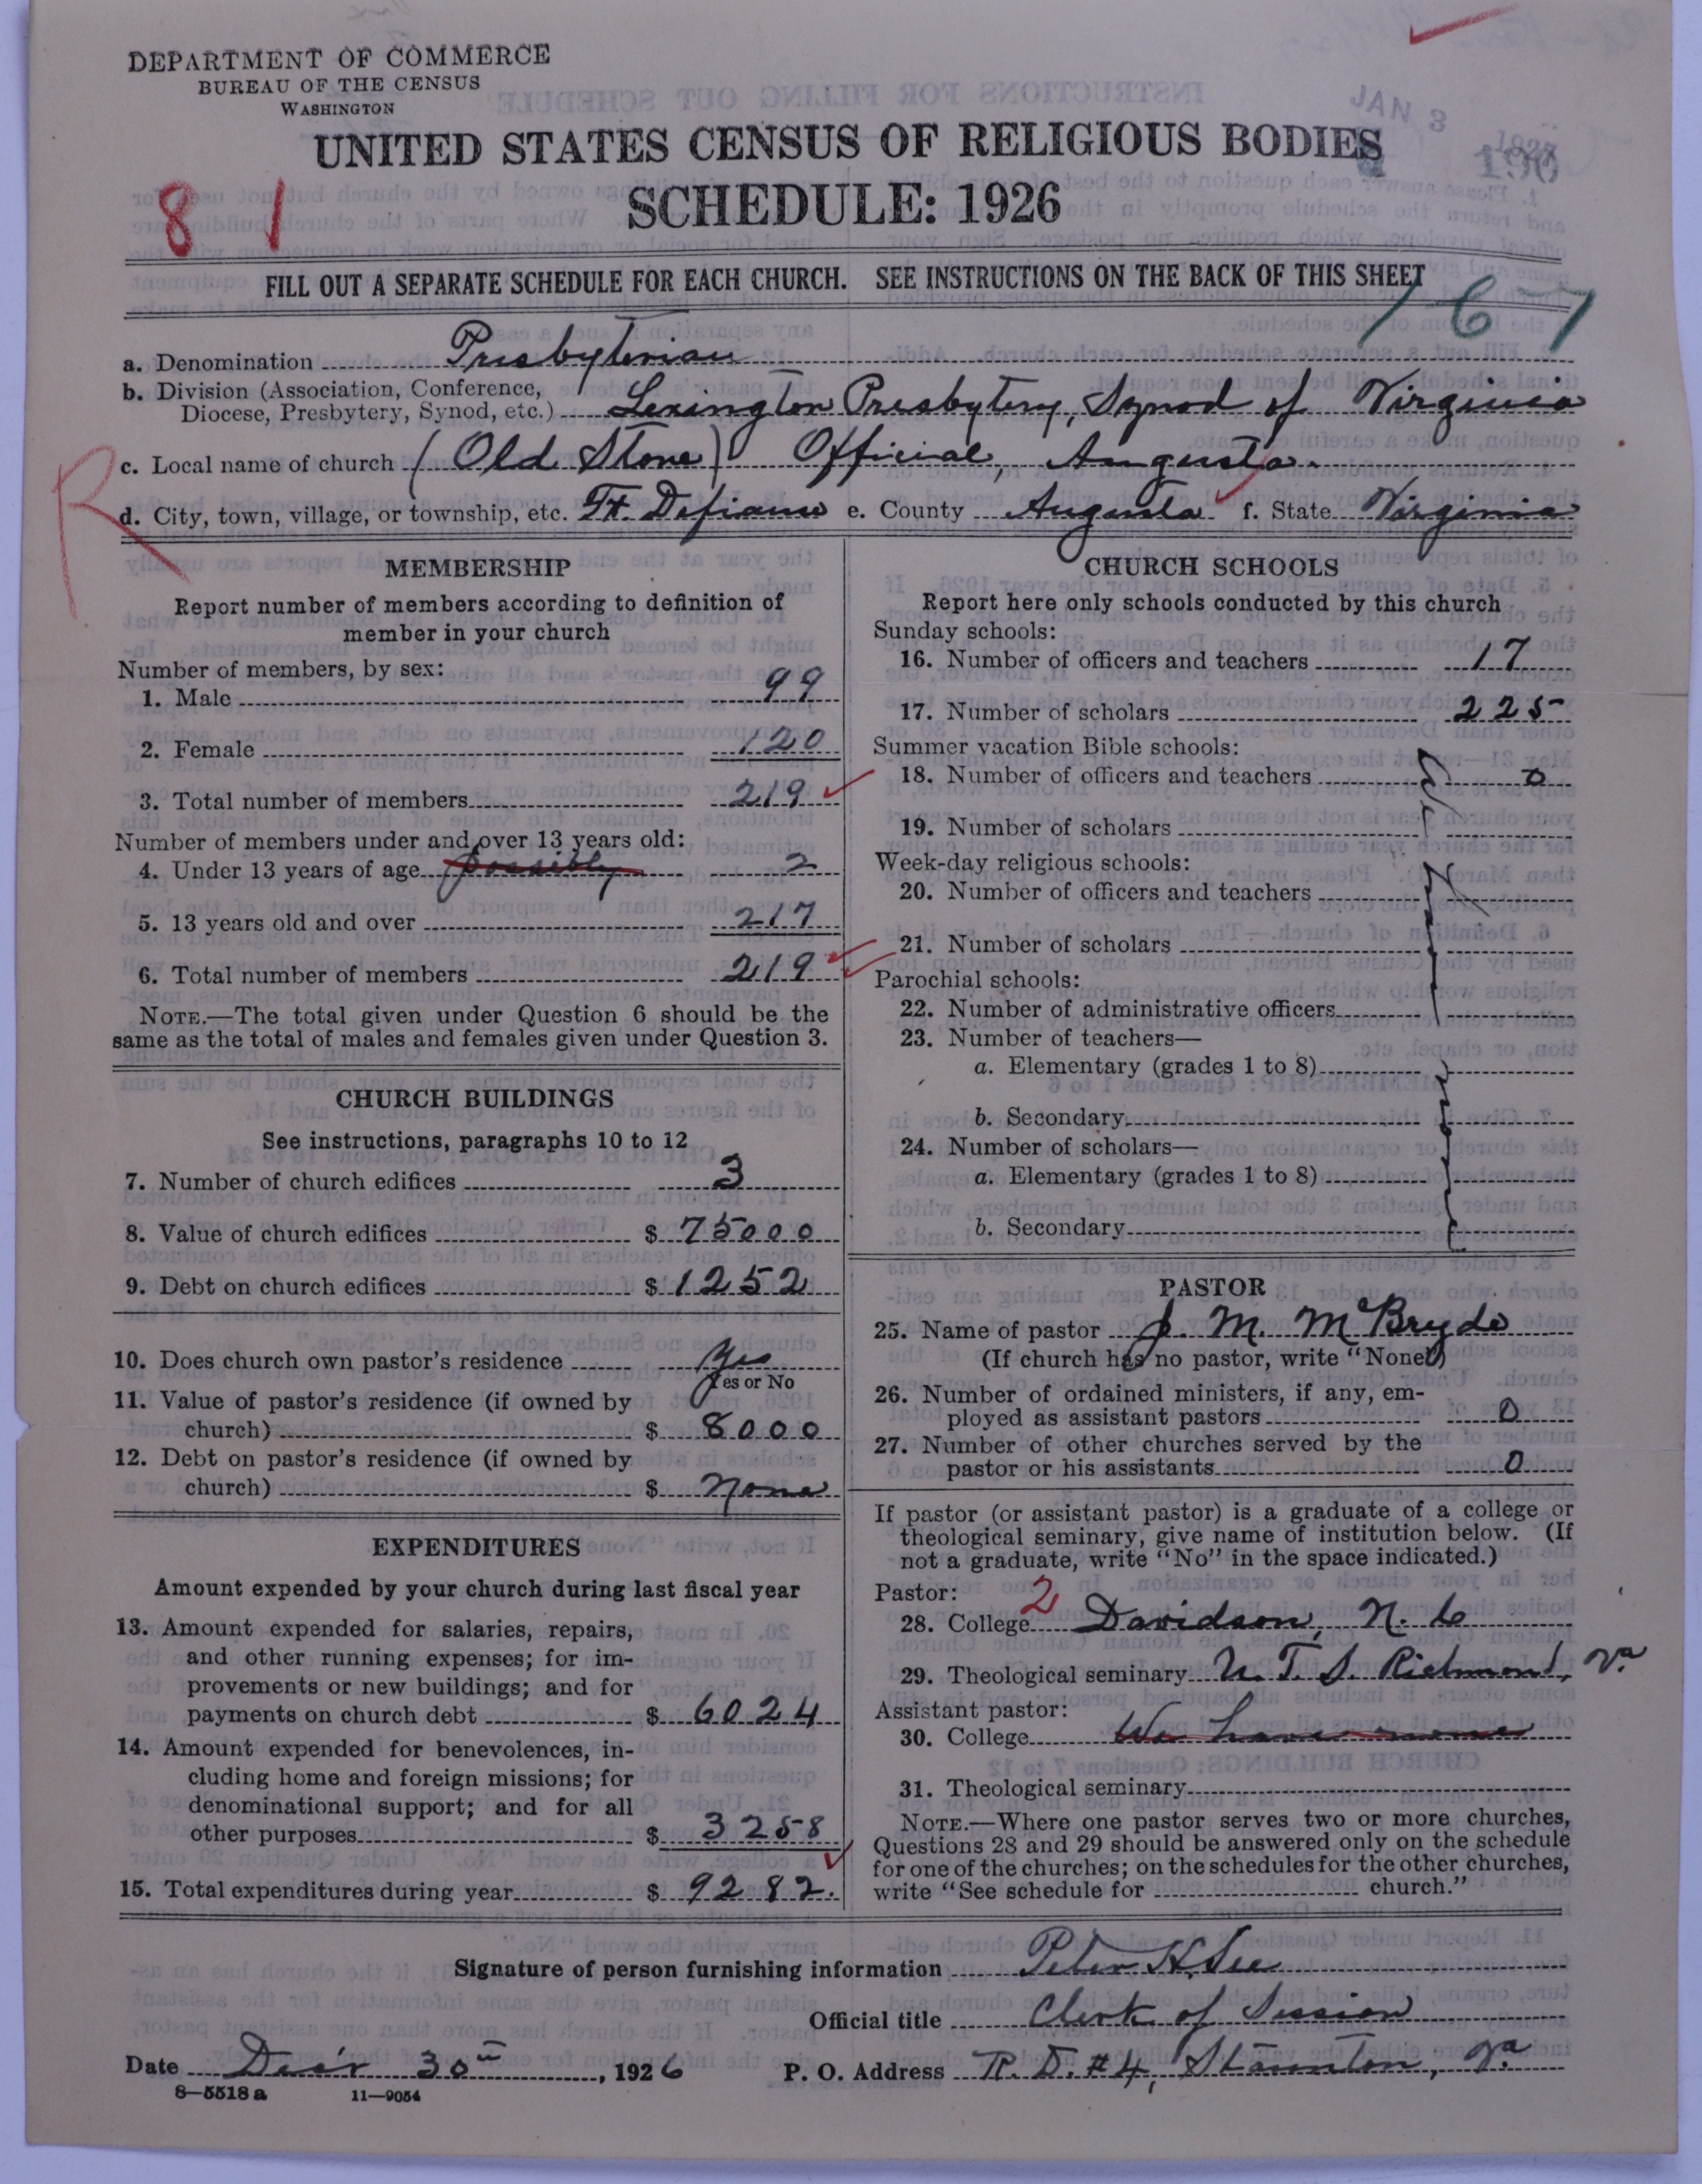 DEPARTMENT OF COMMERCE
BUREAU OF THE CENSUS
WASHINGTON
JAN 3
UNITED STATES CENSUS OF RELIGIOUS BODIES
SCHEDULE: 1926
8 1
FILL OUT A SEPARATE SCHEDULE FOR EACH CHURCH. SEE INSTRUCTIONS ON THE BACK OF THIS SHEET
167
a. Denomination Presbyterian
b. Division (Association, Conference,
Diocese, Presbytery, Synod, etc.) Lexington Presbytery, Synod of Virginia
c. Local name of church (Old Stone) Official, Augusta.
R
d. City, town, village, or township, etc. Ft. Defiance e. County Augusta f. State Virginia
MEMBERSHIP
Report number of members according to definition of
member in your church
Number of members, by sex:
1. Male 99
2. Female 120
3. Total number of members 219
Number of members under and over 13 years old:
4. Under 13 years of age possibly 2
5. 13 years old and over 217
6. Total number of members 219
NOTE.—The total given under Question 6 should be the
same as the total of males and females given under Question 3.
CHURCH BUILDINGS
See instructions, paragraphs 10 to 12
7. Number of church edifices 3
8. Value of church edifices $ 75000
9. Debt on church edifices $ 1252
10. Does church own pastor's residence Yes
Yes or No
11. Value of pastor's residence (if owned by
church) $ 8000
12. Debt on pastor's residence (if owned by
church) $ None
EXPENDITURES
Amount expended by your church during last fiscal year
13. Amount expended for salaries, repairs,
and other running expenses; for im-
provements or new buildings; and for
payments on church debt $ 6024
14. Amount expended for benevolences, in-
cluding home and foreign missions; for
denominational support; and for all
other purposes $ 3258
15. Total expenditures during year $ 9282.
CHURCH SCHOOLS
Report here only schools conducted by this church
Sunday schools:
16. Number of officers and teachers 17
17. Number of scholars 225
Summer vacation Bible schools:
18. Number of officers and teachers 0
19. Number of scholars
Week-day religious schools:
20. Number of officers and teachers
21. Number of scholars
Parochial schools:
22. Number of administrative officers
23. Number of teachers—
a. Elementary (grades 1 to 8)
b. Secondary
24. Number of scholars—
a. Elementary (grades 1 to 8)
b. Secondary
PASTOR
25. Name of pastor J. M. McBryde
(If church has no pastor, write "None")
26. Number of ordained ministers, if any, em-
ployed as assistant pastors 0
27. Number of other churches served by the
pastor or his assistants 0
If pastor (or assistant pastor) is a graduate of a college or
theological seminary, give name of institution below. (If
not a graduate, write "No" in the space indicated.)
Pastor:
28. College 2 Davidson, N. C
29. Theological seminary U. T. S. Richmond, Va
Assistant pastor:
30. College We have none
31. Theological seminary
NOTE.—Where one pastor serves two or more churches,
Questions 28 and 29 should be answered only on the schedule
for one of the churches; on the schedules for the other churches,
write "See schedule for church."
Signature of person furnishing information Peter H. See
Official title Clerk of Session
Date 30th, 1926 P. O. Address R. D. #4, Staunton, Va
8—5518 a 11—9054